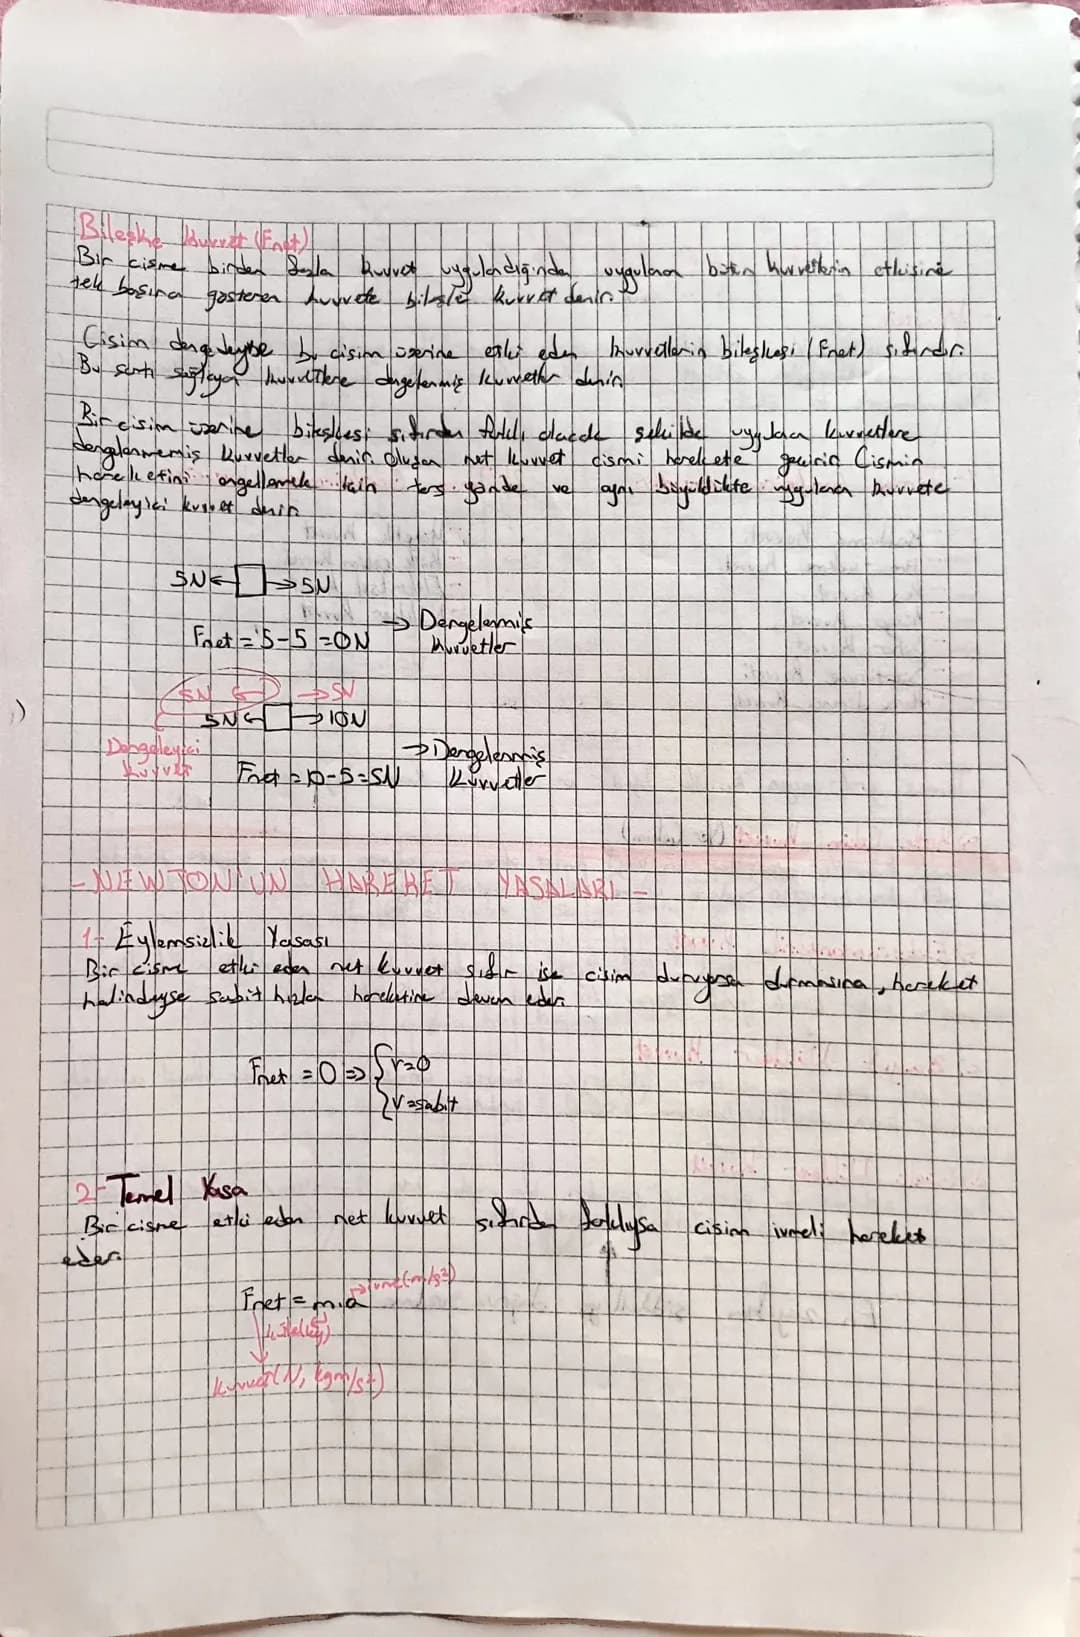 Bileşke kuvvet (Fnet)
Bir cisme birden fazla kuvvet uygulandığında uygulanan bütün kuvvetlerin etkisini
tek başına gösteren kuvvete bileşke kuvvet denir.
Cisim dengedeyse bu cisim üzerine etki eden kuvvetlerin bileşkesi (Fnet) sıfırdır.
Bu şartı sağlayan kuvvetlere dengelenmiş kuvvetler denir.
Bir cisim üzerine bileşkesi sıfırdan farklı olacak şekilde uygulanan kuvvetlere
dengelenmemiş kuvvetler denir. Oluşan net kuvvet cismi harekete geçirir. Cismin
hareketini engellemek için ters yönde ve aynı büyüklükte uygulanan kuvvete
dengeleyici kuvvet denir.
5N ← → 5N
Fnet = 5-5 = 0N → Dengelenmiş
kuvvetler
5N ← → 5N
5N ← → 10N
Dengeleyici
kuvvet
Fnet = 10-5=5N → Dengelenmiş
kuvvetler
- NEWTON'UN HAREKET YASALARI -
1- Eylemsizlik Yasası
Bir cisme etki eden net kuvvet sıfır ise cisim duruyorsa durmasına, hareket
halindeyse sabit hızla hareketine devam eder.
Fnet = 0 => { v=0
v=sabit
2- Temel Yasa
Bir cisme etki eden net kuvvet sıfırdan farklıysa cisim ivmeli hareket
eder.
Fnet = m.a → ivme(m/s²)
kütle(kg)
kuvvet(N, kgm/s²)